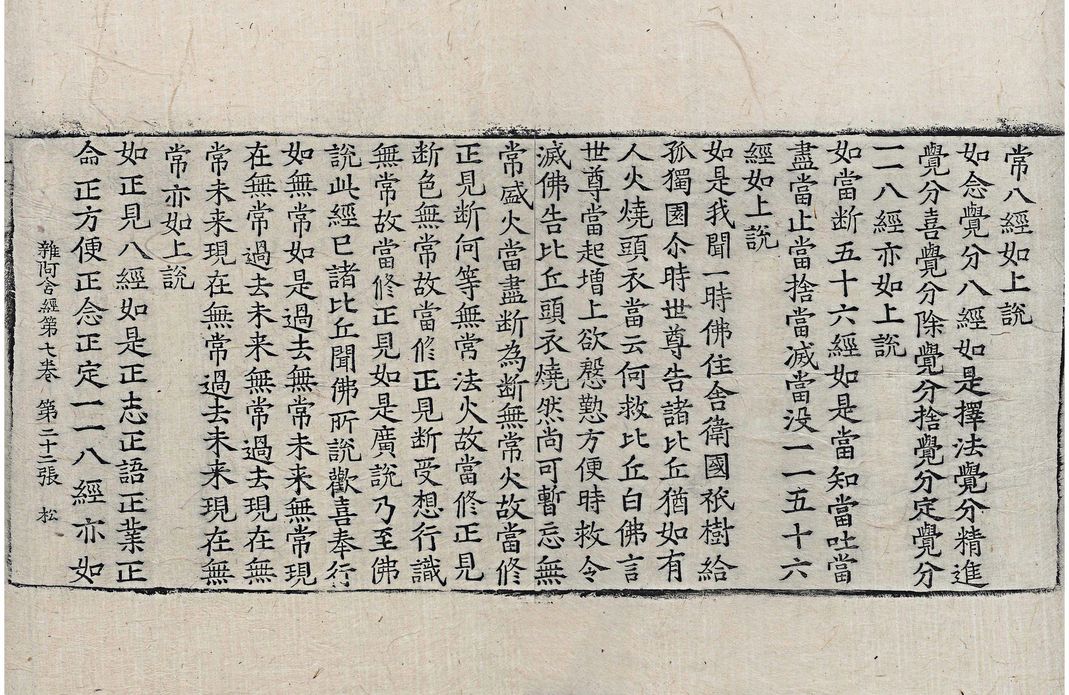 常八經如上說
如念覺分八經如是擇法覺分精進
覺分喜覺分除覺分捨覺分定覺分
一一八經亦如上說
如當断五十六經如是當知當吐當
盡當止當捨當滅當没一一五十六
經如上說
如是我聞一時佛住舍衛國祇樹給
孤獨園尒時世尊告諸比丘猶如有
人火燒頭衣當云何救比丘白佛言
世尊當起增上欲慇懃方便時救令
滅佛告比丘頭衣燒然尚可暫忘無
常盛火當盡断為断無常火故當修
正見断何等無常法火故當修正見
断色無常故當修正見断受想行識
無常故當修正見如是廣說乃至佛
說此經已諸比丘聞佛所說歡喜奉行
如無常如是過去無常未来無常現
在無常過去未来無常過去現在無
常未来現在無常過去未来現在無
常亦如上說
如正見八經如是正志正語正業正
命正方便正念正定一一八經亦如
雜阿含經第七卷 第二十二張 松